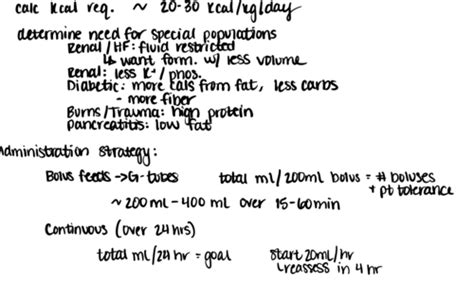 calc kcal req. ~ 20-30 kcal/kg/day
determine need for special populations
Renal/HF: fluid restricted
↳ want form. w/ less volume
Renal: less K+/phos.
Diabetic: more cals from fat, less carbs
- more fiber
Burns/Trauma: high protein
Pancreatitis: low fat
Administration Strategy:
Bolus feeds → G-tubes total ml/200ml bolus = # boluses
+ pt tolerance
~ 200 mL - 400 mL over 15-60min
Continuous (over 24 hrs)
total ml/24 hr = goal start 20ml/hr
↳ reassess in 4 hr